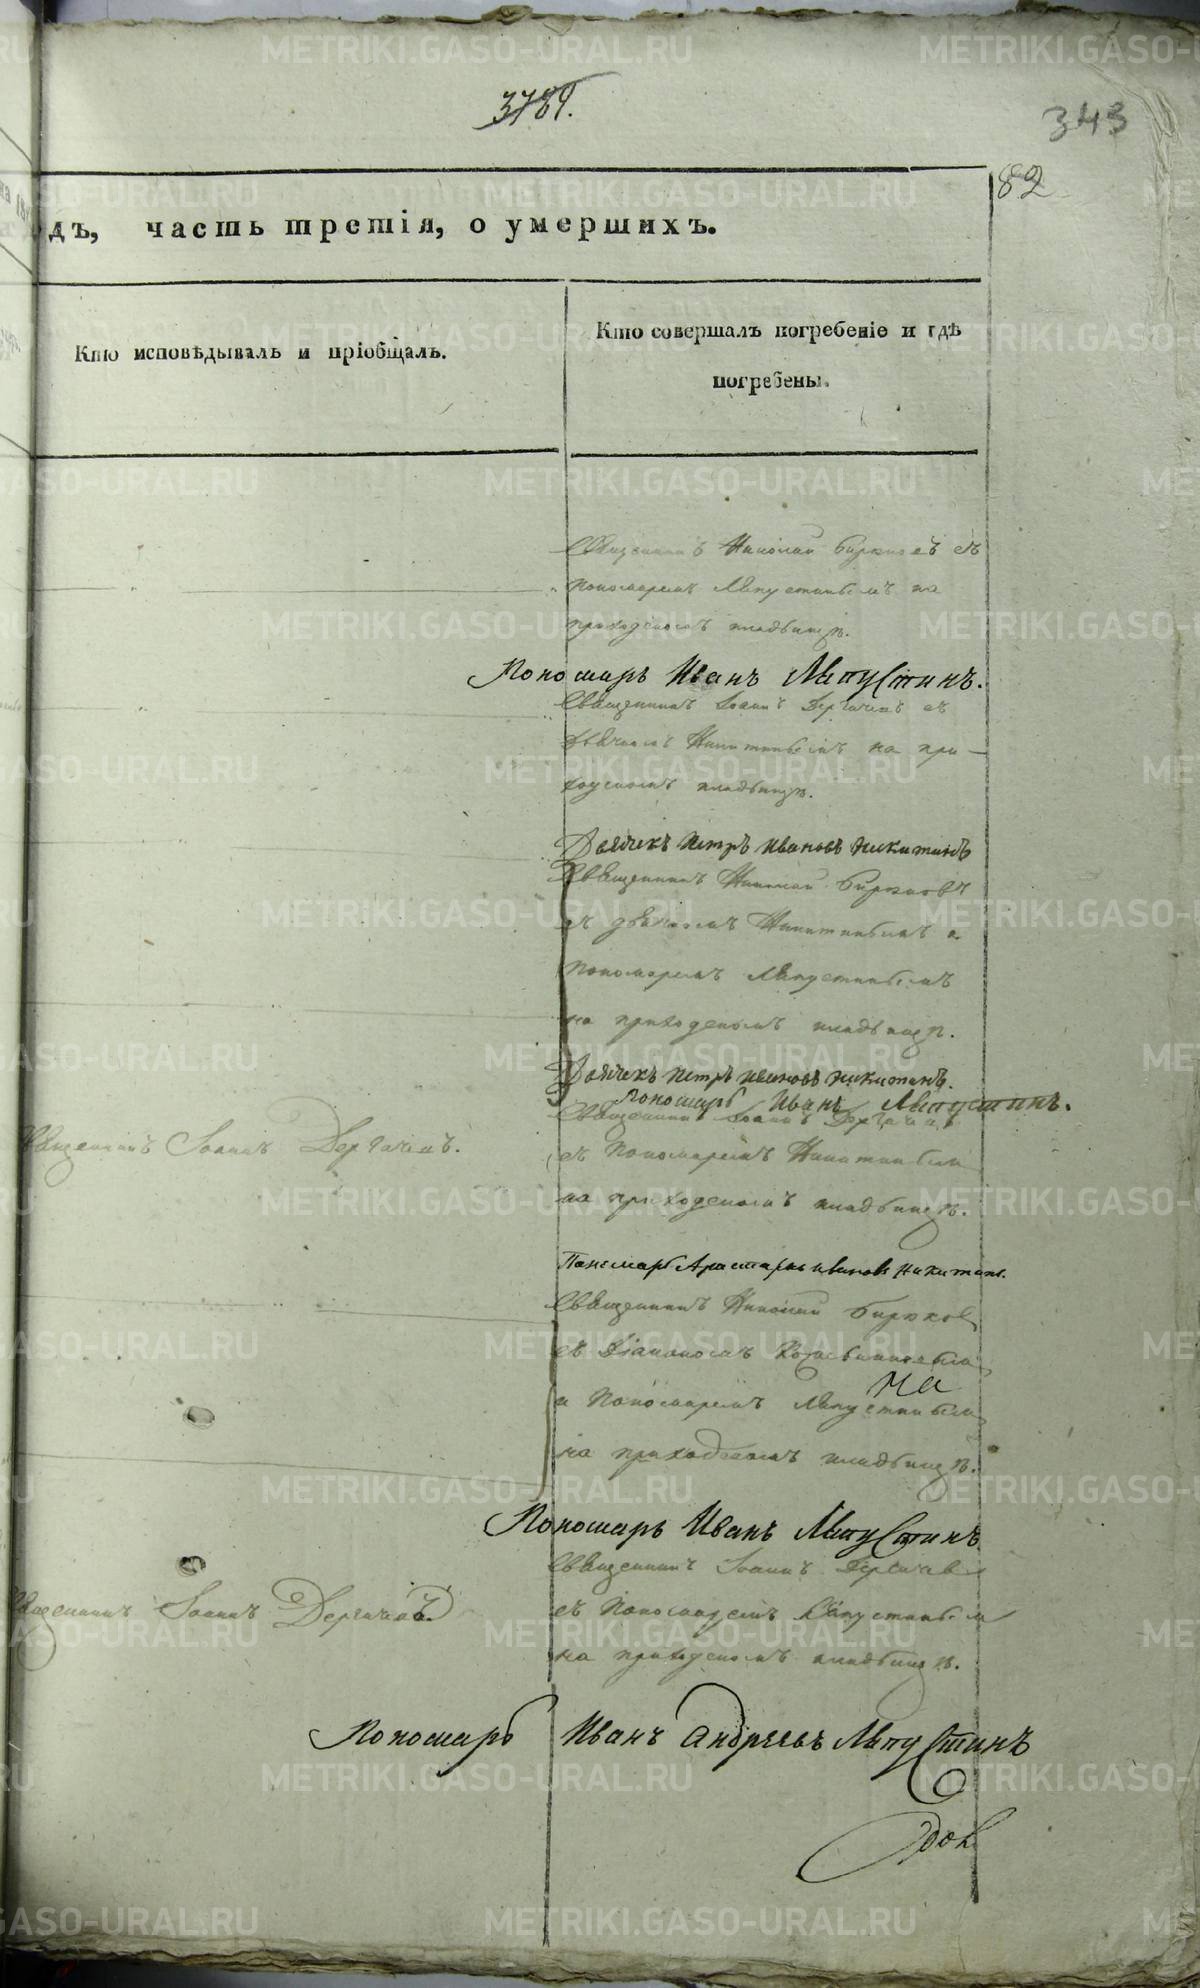 3789.
343
82
дъ, часть третія, о умершихъ.
Кто исповѣдывалъ и пріобщалъ.
Кто совершалъ погребеніе и гдѣ
погребены.
Священникъ Николай Бирюковъ съ
пономаремъ Лапустинымъ на
приходскомъ кладбищѣ.
Пономарь Иванъ Лапустинъ.
Священникъ Іоаннъ Дергачевъ съ
дьячкомъ Никитинымъ на при-
ходскомъ кладбищѣ.
Дьячекъ Петръ Ивановъ Никитинъ
Священникъ Николай Бирюковъ
съ дьячкомъ Никитинымъ и
пономаремъ Лапустинымъ
на приходскомъ кладбищѣ.
Дьячекъ Петръ Ивановъ Никитинъ.
Пономарь Иванъ Лапустинъ.
Священникъ Іоаннъ Дергачевъ.
Священникъ Іоаннъ Дергачевъ
съ Пономаремъ Никитинымъ
на приходскомъ кладбищѣ.
Пономарь Аристархъ Ивановъ Никитинъ.
Священникъ Николай Бирюковъ
съ Діакономъ
на
и Пономаремъ Лапустинымъ
на приходскомъ кладбищѣ.
Пономарь Иванъ Лапустинъ
Священникъ Іоаннъ Дергачевъ.
Священникъ Іоаннъ Дергачевъ
съ Пономаремъ Лапустинымъ
на приходскомъ кладбищѣ.
Пономарь Иванъ Андреевъ Лапустинъ
METRIKI.GASO-URAL.RU